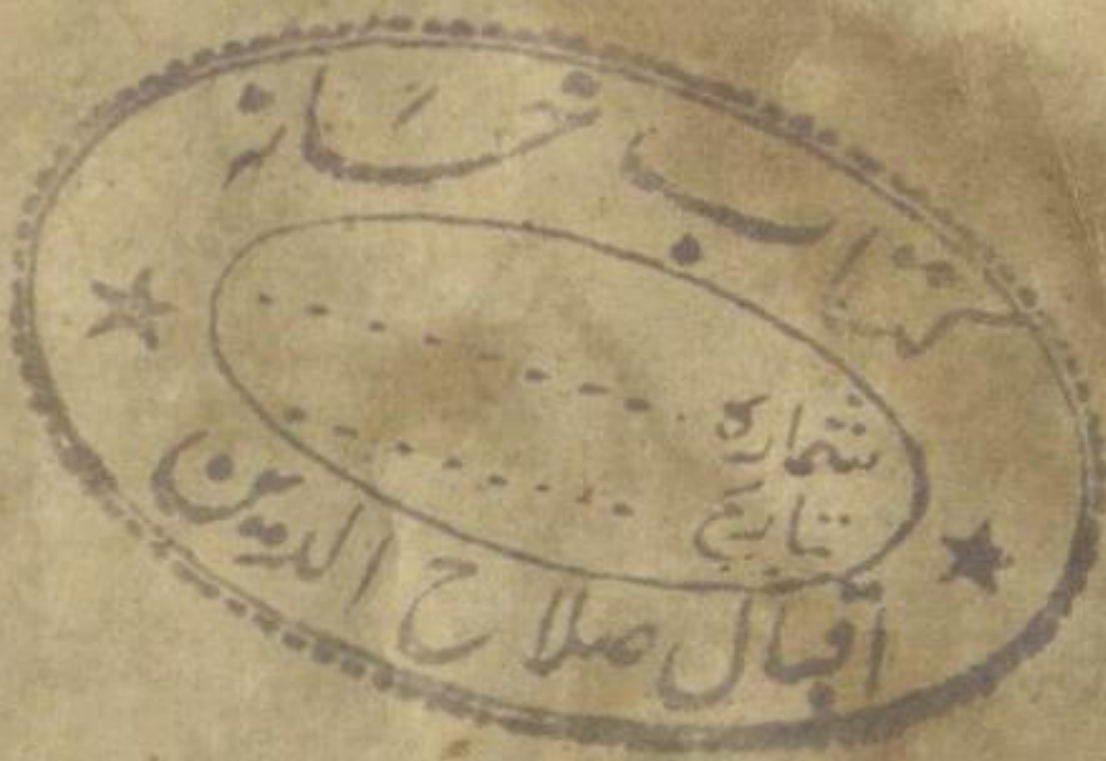 کتاب خانہ
شمارہ
تاریخ
اقبال صلاح الدین